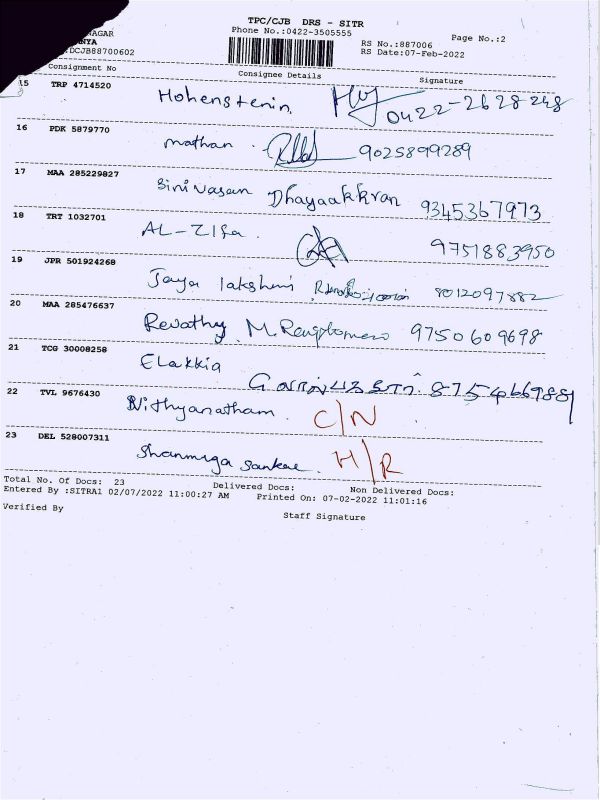 TPC/CJB DRS - SITR
NAGAR Phone No.:0422-3505555 Page No.:2
NYA RS No.:887006
:DCJB88700602 RS Date:07-Feb-2022
Consignment No Consignee Details Signature
15 TRP 4714520 Hohenstenin. 0422-2628248
16 PDK 5879770 mathan 9025899289
17 MAA 285229827 Sinivasan Dhayaakkran 9345367973
18 TRT 1032701 AL-Zifa. 9751883950
19 JPR 501924268 Jaya lakshmi 8012097882
20 MAA 285476637 Revathy M. 9750609698
21 TCG 30008258 Elakkia 8754669881
22 TVL 9676430 Nithyanatham. C/N
23 DEL 528007311 Shanmuga Sankar. H/R
Total No. Of Docs: 23 Delivered Docs: Non Delivered Docs:
Entered By :SITRA1 02/07/2022 11:00:27 AM Printed On: 07-02-2022 11:01:16
Verified By Staff Signature